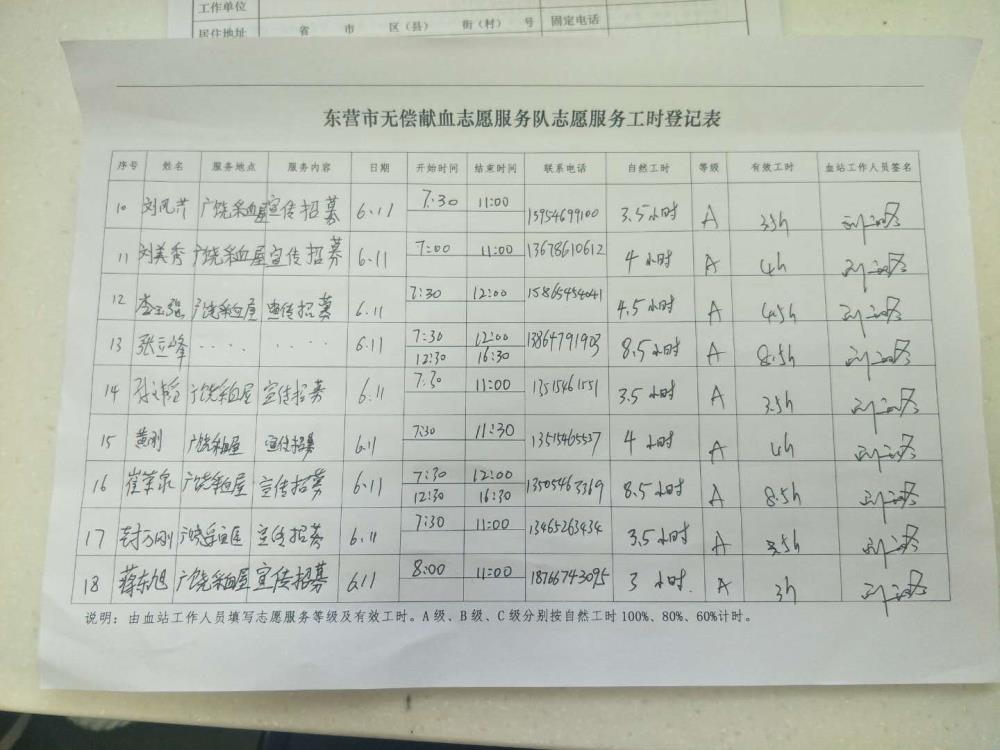 工作单位
居住地址 省 市 区（县） 街（村） 号 固定电话
东营市无偿献血志愿服务队志愿服务工时登记表
序号 姓名 服务地点 服务内容 日期 开始时间 结束时间 联系电话 自然工时 等级 有效工时 血站工作人员签名
10 刘凤芹 广饶采血屋 宣传招募 6.11 7:30 11:00 15954699100 3.5小时 A 3.5h
11 刘美秀 广饶采血屋 宣传招募 6.11 7:00 11:00 13678610612 4小时 A 4h
12 李玉强 广饶采血屋 宣传招募 6.11 7:30 12:00 15865454041 4.5小时 A 4.5h
13 张立峰 . . . . . . . . 6.11 7:30 12:00 13864791903 8.5小时 A 8.5h
12:30 16:30
14 广饶采血屋 宣传招募 6.11 7:30 11:00 13515461551 3.5小时 A 3.5h
15 黄刚 广饶采血屋 宣传招募 6.11 7:30 11:30 13515465537 4小时 A 4h
16 崔荣泉 广饶采血屋 宣传招募 6.11 7:30 12:00 13505463369 8.5小时 A 8.5h
12:30 16:30
17 封万刚 宣传招募 6.11 7:30 11:00 13465263434 3.5小时 A 3.5h
18 蒋东旭 广饶采血屋 宣传招募 6.11 8:00 11:00 18766743095 3小时. A 3h
说明：由血站工作人员填写志愿服务等级及有效工时。A级、B级、C级分别按自然工时100%、80%、60%计时。